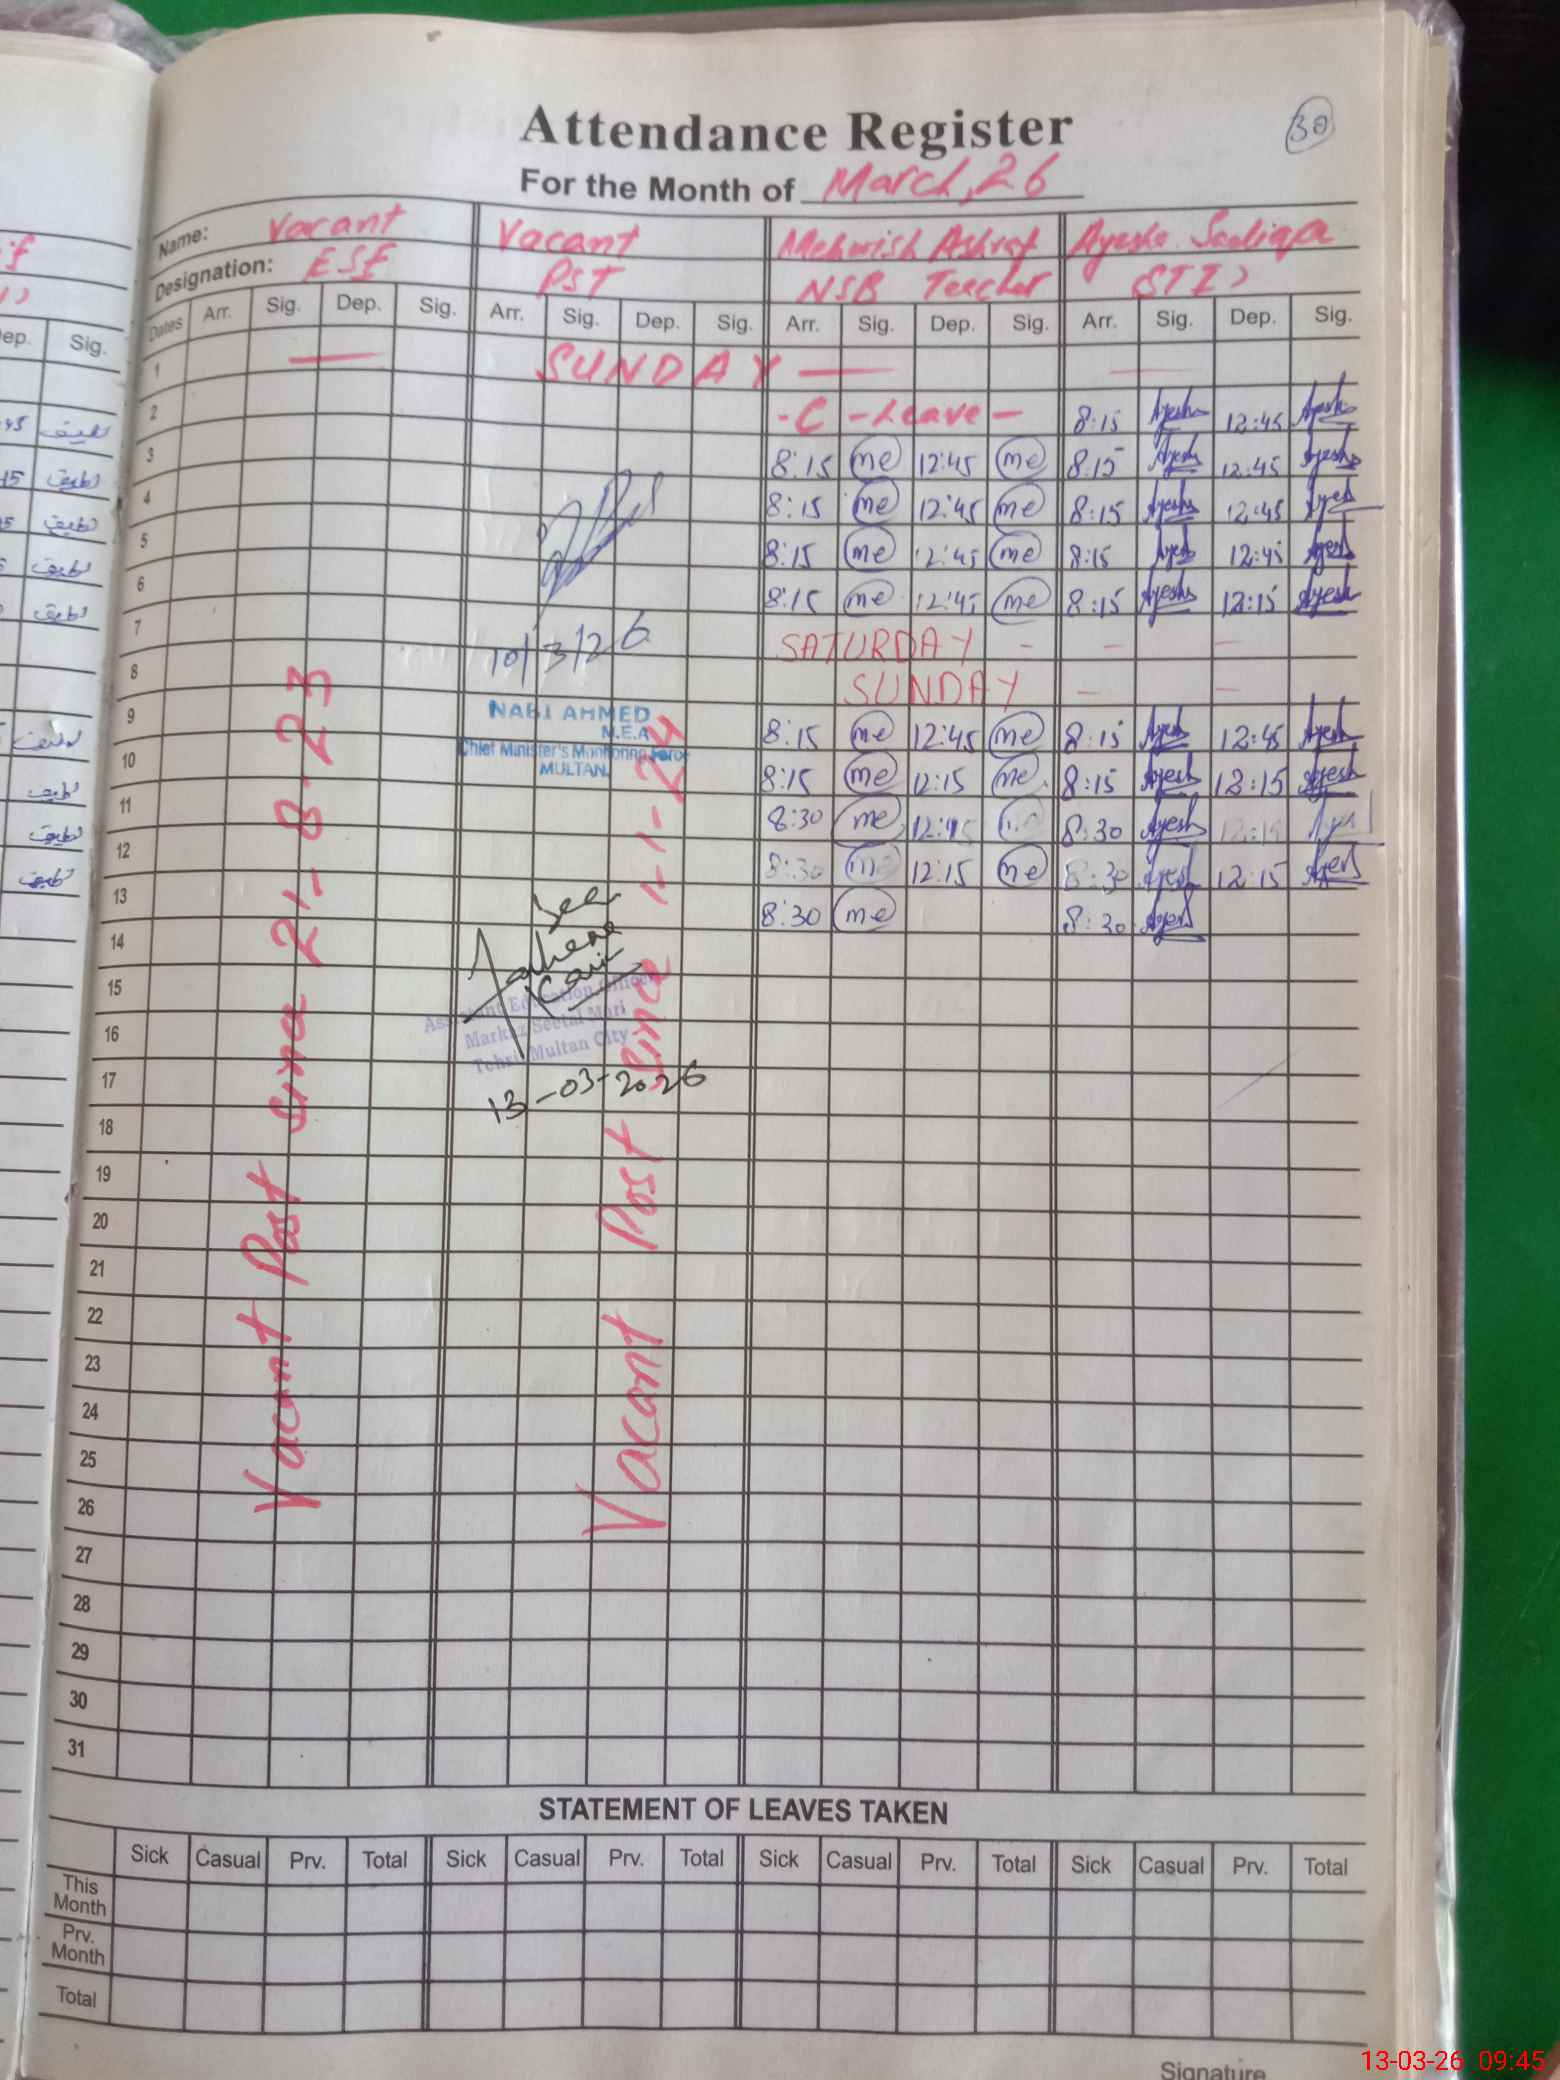 Attendance Register
30
For the Month of March, 26
Name: Vacant Vacant Mehwish Ashraf Ayesha Sadiqa
Designation: ESE PST NSB Teacher (STI)
Dates Arr. Sig. Dep. Sig. Arr. Sig. Dep. Sig. Arr. Sig. Dep. Sig. Arr. Sig. Dep. Sig.
1 — SUNDAY — —
2 - C - Leave - 8:15 Ayesha 12:45 Ayesha
3 8:15 me 12:45 me 8:15 Ayesha 12:45 Ayesha
4 8:15 me 12:45 me 8:15 Ayesha 12:45 Ayesh
5 8:15 me 12:45 me 8:15 Ayesh 12:45 Ayesh
6 8:15 me 12:45 me 8:15 Ayesha 12:15 Ayesh
7 SATURDAY - - -
8 SUNDAY - -
9 8:15 me 12:45 me 8:15 Ayesh 12:45 Ayesh
10 8:15 me 12:15 me 8:15 Ayesh 12:15 Ayesh
11 8:30 me 8:30 Ayesh
12 8:30 me 12:15 me 8:30 Ayesh 12:15 Ayesh
13 8:30 me 8:30 Ayesh
14
15
16
17
18
19
20
21
22
23
24
25
26
27
28
29
30
31
10/3/26
NABI AHMED
M.E.A
Chief Minister's Monitoring Force
MULTAN.
Assistant Education Officer
Markaz Seetal Mari
Tehsil Multan City
13-03-2026
Vacant Post since 21-8-23
Vacant Post since 1-1-24
STATEMENT OF LEAVES TAKEN
Sick Casual Prv. Total Sick Casual Prv. Total Sick Casual Prv. Total Sick Casual Prv. Total
This Month
Prv. Month
Total
Signature
ep. Sig.
45 لطیف
15 لطیف
لطیف
لطیف
لطیف
لطیف
لطیف
لطیف
لطیف
13-03-26 09:45